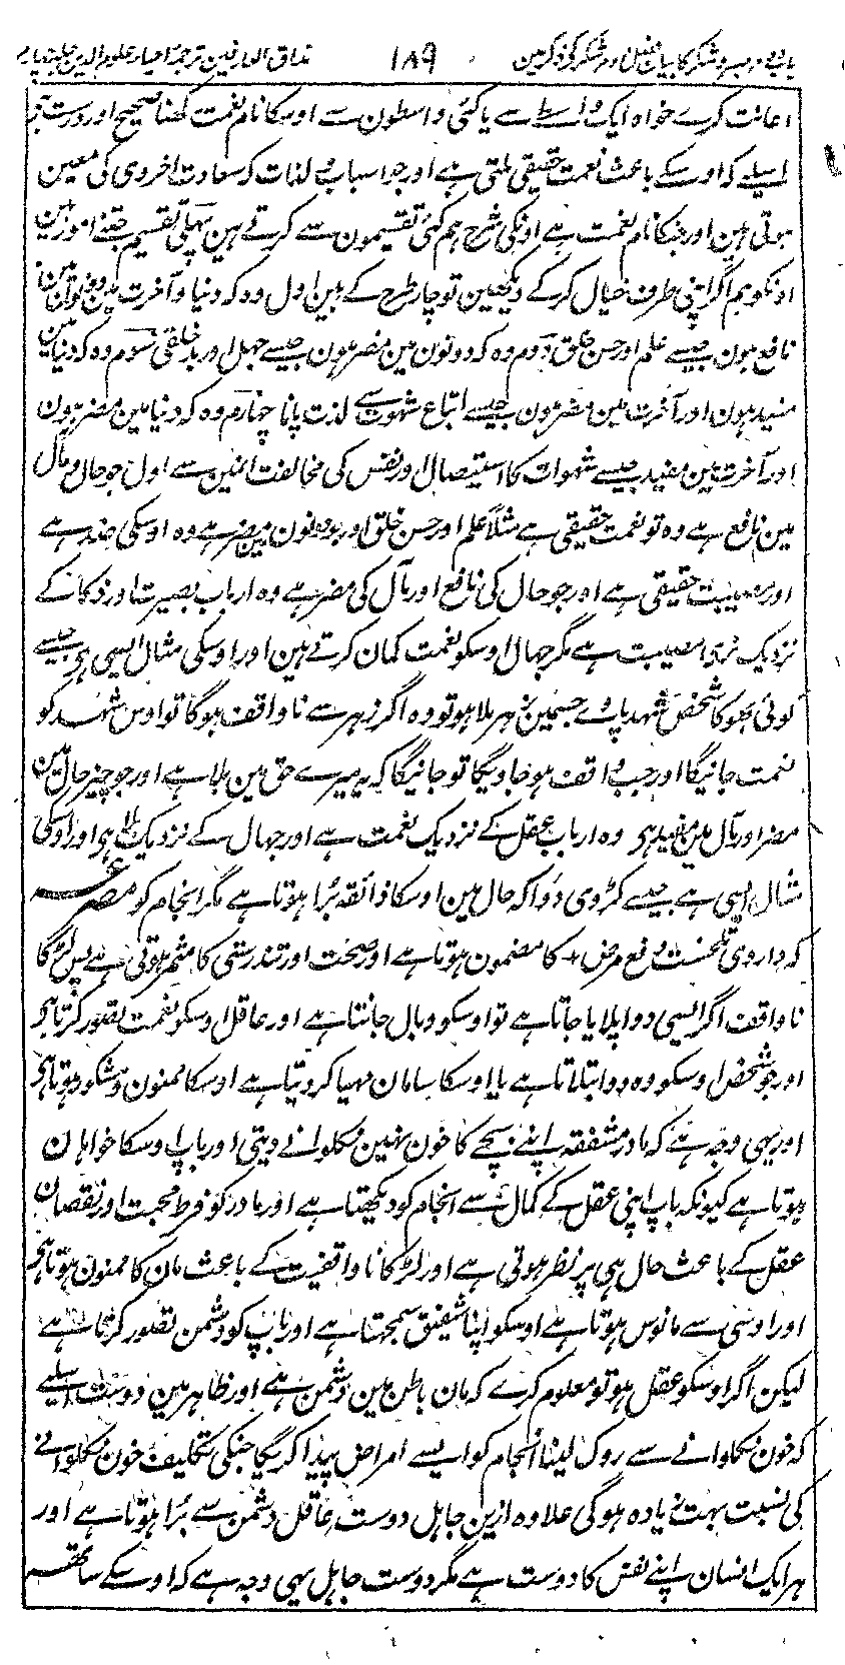 باب دوم صبر و شکر کا بیان فصل دوم شکر کے ذکر مین ۱۸۹ مذاق العارفین ترجمۂ احیاء علوم الدین جلد چہارم
اعانت کرے خواہ ایک واسطے سے یا کئی واسطون سے اوسکا نام نعمت رکھنا صحیح اور درست ہے
اسلیے کہ اوسکے باعث نعمت حقیقی ملتی ہے اور جو اسباب و لذات کہ سعادت اخروی کی معین
ہوتی ہین اور جنکا نام نعمت ہے اونکی شرح ہم کئی تقسیمون سے کرتے ہین پہلی تقسیم جتنے امور ہین
اونکو ہم اگر اپنی طرف خیال کرکے دیکھین تو چار طرح کے ہین اول وہ کہ دنیا و آخرت مین دونون مین
نافع ہون جیسے علم اور حسن خلق دوم وہ کہ دونون مین مضر ہون جیسے جہل اور بدخلقی سوم وہ کہ دنیا مین
مفید ہون اور آخرت مین مضر ہون جیسے اتباع شہوت سے لذت پانا چہارم وہ کہ دنیا مین مضر ہون
اور آخرت مین مفید جیسے شہوات کا استیصال اور نفس کی مخالفت انمین سے اول جو حال و مآل
مین نافع ہے وہ تو نعمت حقیقی ہے مثلاً علم اور حسن خلق اور جو دونون مین مضر ہے وہ اوسکی ضد ہے
اور مصیبت حقیقی ہے اور جو حال کی نافع اور مآل کی مضر ہے وہ ارباب بصیرت اور ذکا کے
نزدیک نری مصیبت ہے مگر جہال اوسکو نعمت گمان کرتے ہین اور اوسکی مثال ایسی ہے جیسے
کوئی بھوکا شخص شہد پاوے جسمین زہر ملا ہو تو وہ اگر زہر سے ناواقف ہوگا تو اوس شہد کو
نعمت جانیگا اور جب واقف ہو جاویگا تو جانیگا کہ یہ میرے حق مین بلا ہے اور جو چیز حال مین
مضر اور مآل مین مفید ہی وہ ارباب عقل کے نزدیک نعمت ہے اور جہال کے نزدیک بلا ہی اور اوسکی
مثال ایسی ہے جیسے کڑوی دوا کہ حال مین اوسکا ذائقہ برا ہوتا ہے مگر انجام کو مصرعہ
کہ داروی تلخست دفع مرض + کا مضمون ہوتا ہے اور صحت اور تندرستی کا مثمر ہوتی ہے پس لڑکا
ناواقف اگر ایسی دوا پلایا جاتا ہے تو اوسکو وبال جانتا ہے اور عاقل اوسکو نعمت تصور کرتا ہی
اور جو شخص اوسکو وہ دوا بتلاتا ہے یا اوسکا سامان مہیا کر دیتا ہے اوسکا ممنون و مشکور ہوتا ہی
اور یہی وجہ ہے کہ مادر مشفقہ اپنے بچے کا خون نہین نکلوانے دیتی اور باپ اوسکا خواہان
ہوتا ہے کیونکہ باپ اپنی عقل کے کمال سے انجام کو دیکھتا ہے اور مادر کو فرط محبت اور نقصان
عقل کے باعث حال ہی پر نظر ہوتی ہے اور لڑکا ناواقفیت کے باعث مان کا ممنون ہوتا ہی
اور اوسی سے مانوس ہوتا ہے اوسکو اپنا شفیق سمجھتا ہے اور باپ کو دشمن تصور کرتا ہے
لیکن اگر اوسکو عقل ہو تو معلوم کرے کہ مان باطن مین دشمن ہے اور ظاہر مین دوست اسلیے
کہ خون نکلوانے سے روک لینا انجام کو ایسے امراض پیدا کریگا جنکی تکلیف خون نکلوانے
کی نسبت بہت زیادہ ہوگی علاوہ ازین جاہل دوست عاقل دشمن سے برا ہوتا ہے اور
ہر ایک انسان اپنے نفس کا دوست ہے مگر دوست جاہل یہی وجہ ہے کہ اوسکے ساتھ